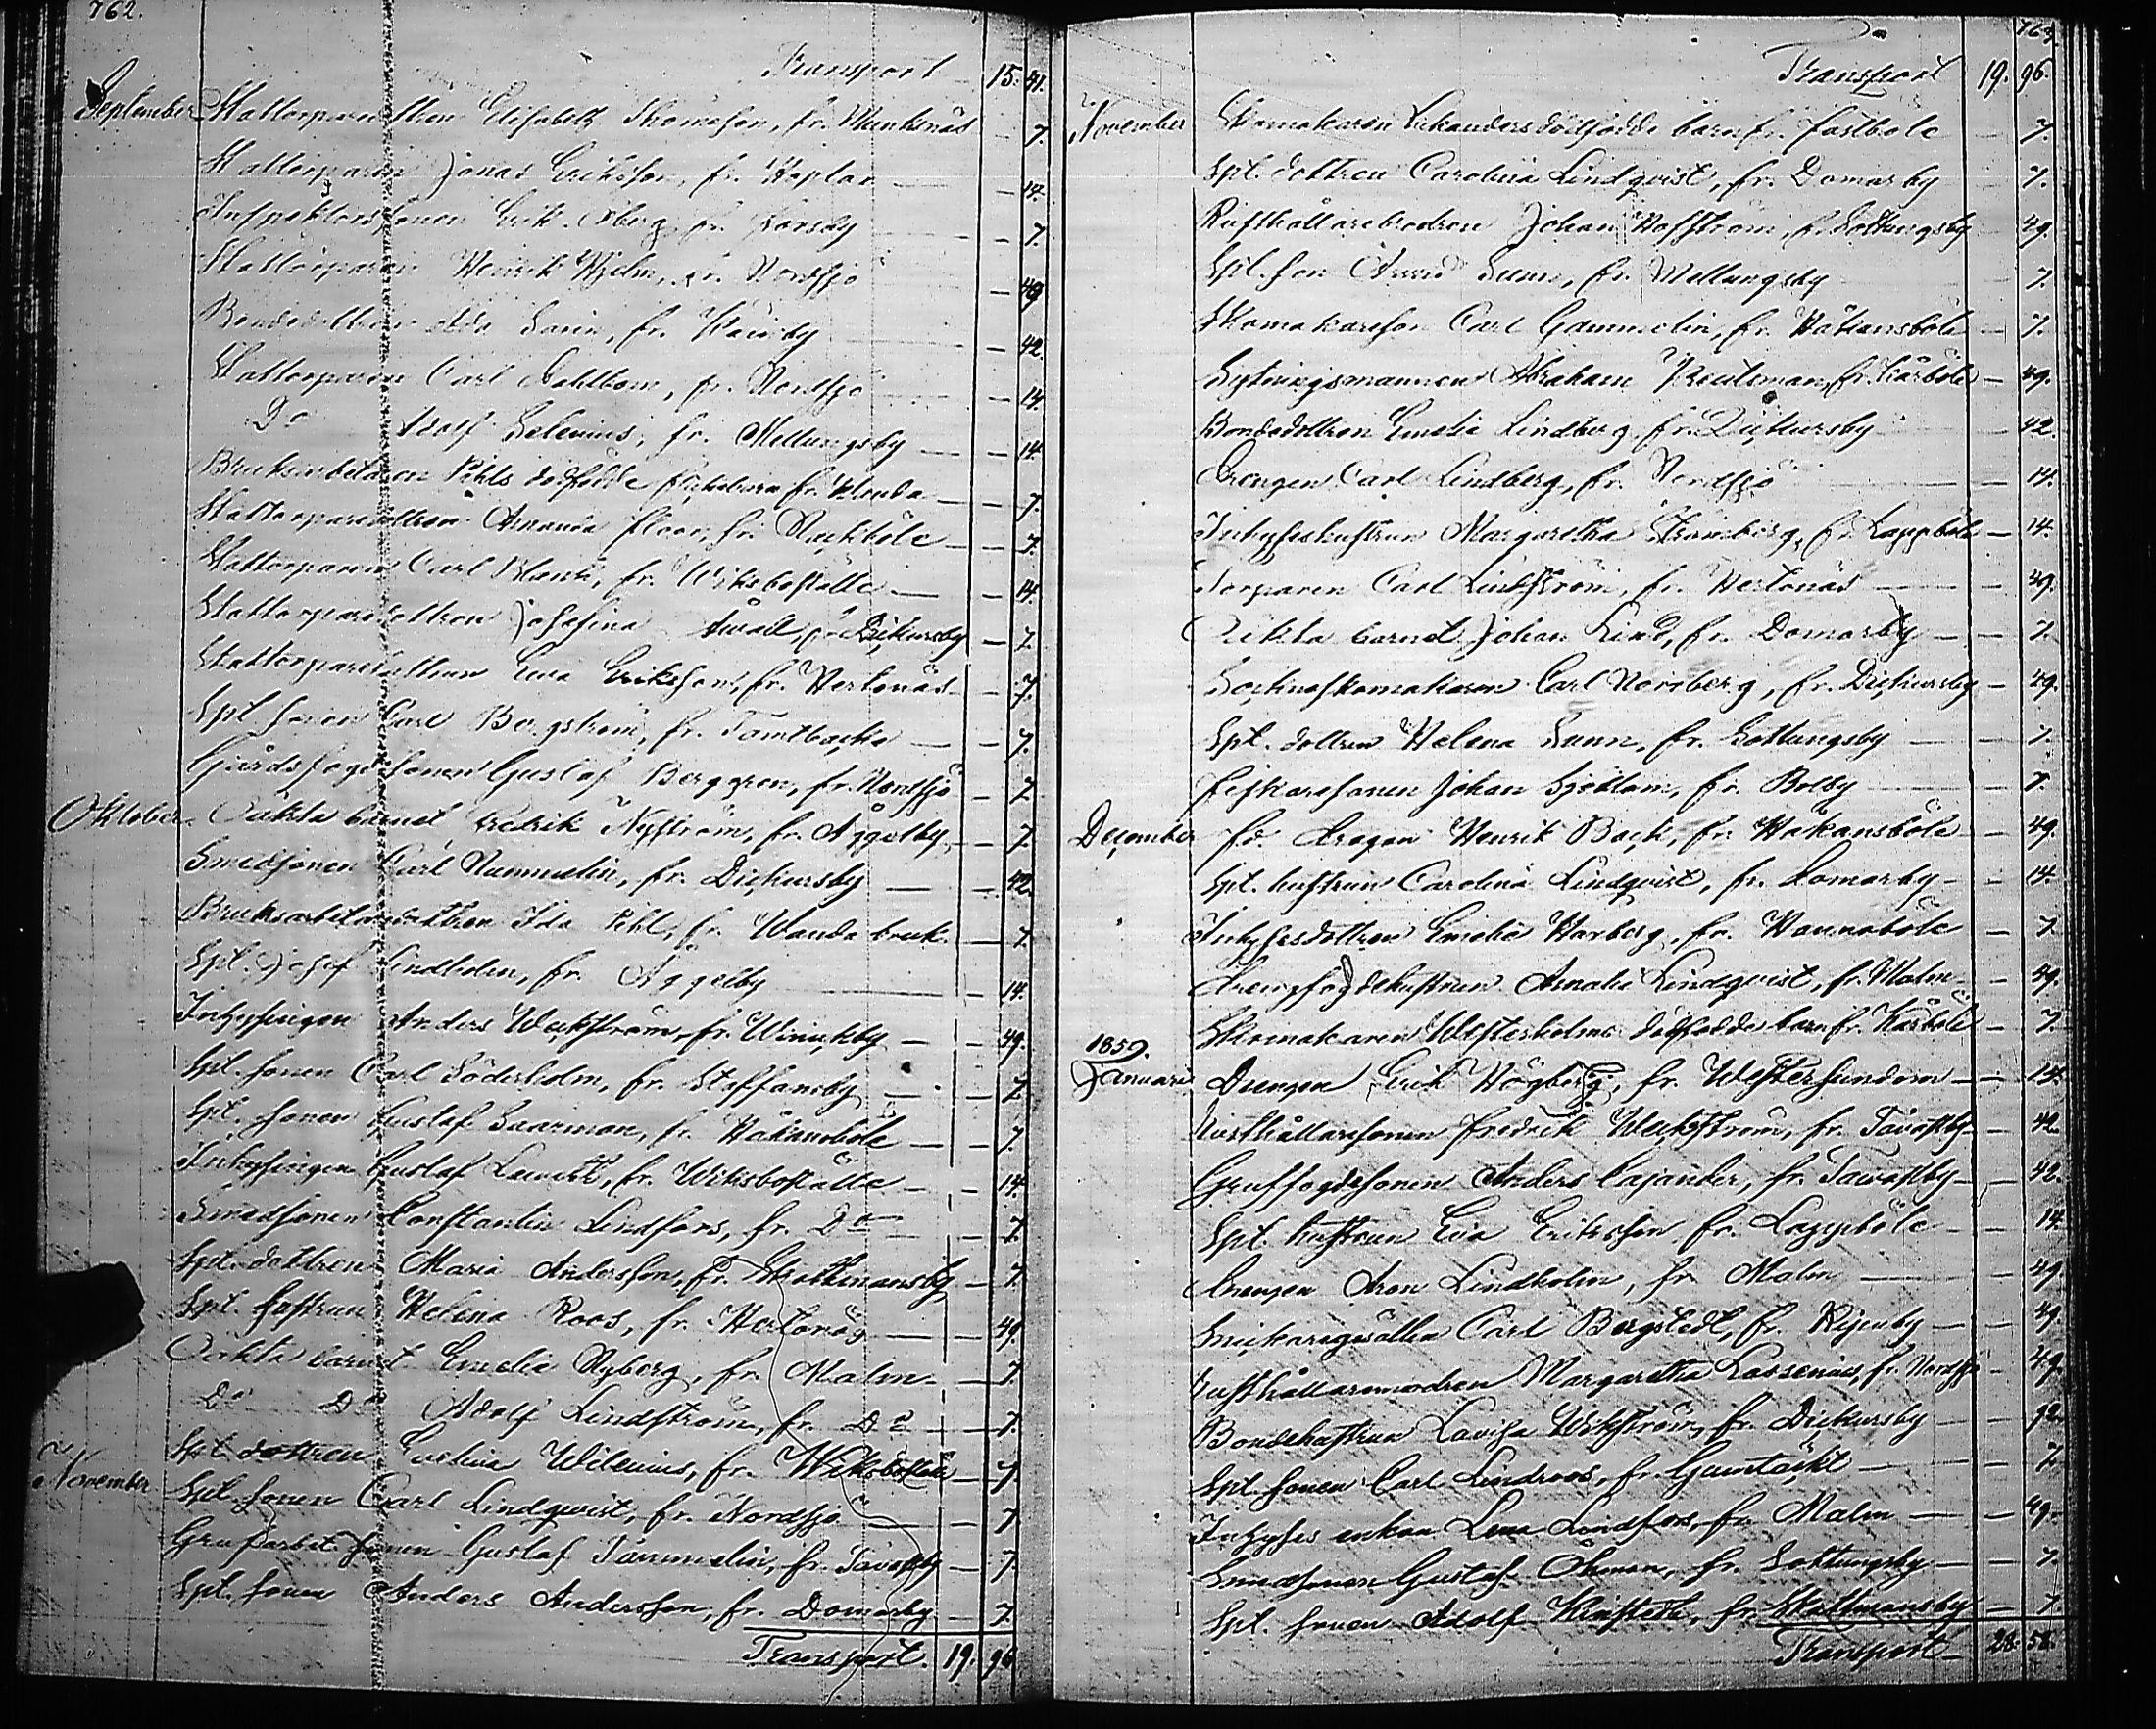 762.
Transport 15. 41.
September Stattorparedottren Elisabeth Thomeson, fr. Munksnäs — 7.
Stattorparen Jonas Eriksson, fr. Hoplax — 14.
Inspektorssonen Erik Öberg, fr. Korsby — 7.
Stattorparen Henrik Hjelm, fr. Nordsjö — 49.
Bondedottren Ida Sarin, fr. — 42.
Stattorparen Carl Dahlbom, fr. Nordsjö — 14.
Do Adolf Selenius, fr. Mellungsby — 14.
Bruksarbetaren Pihls dödfödde flickebarn fr. Wanda — 7.
Stattoparedottren Amanda Floor, fr. Stackböle — 7.
Stattorparen Carl Blank, fr. Wiksboställe — 14.
Stattorparedottren Josefina Awall, fr. Dickursby — 7.
Stattorparedottren Ewa Eriksson, fr. Hertonäs — 7.
Spl. sonen Carl Bergström, fr. Tomtbacka — 7.
Gårdsfogdesonen Gustaf Berggren, fr. Nordsjö — 7.
Oktober. Oäkta barnet Fredrik Nyström, fr. Åggelby — 7.
Smedsonen Carl Nummelin, fr. Dickursby — 42.
Bruksarbetaredottren Ida Pihl, fr. Wanda bruk — 7.
Spl. Josef Lindholm, fr. Åggelby — 14.
Inhysingen Anders Weckström, fr. Winickby — 49.
Spl. sonen Carl Söderholm, fr. Staffansby — 7.
Spl. sonen Gustaf Saarman, fr. Håkansböle — 7.
Inhysingen Gustaf, fr. Wiksboställe — 14.
Smedsonen Constantin Lindfors, fr. Do — 7.
Spl. dottren Maria Andersson, fr. Skattmansby — 7.
Spl. hustrun Helena Roos, fr. Hertonäs — 49.
Oäkta barnet Emelie Nyberg, fr. Malm — 7.
Do Do Adolf Lindström, fr. Do — 7.
November Spl. dottren Evelina Wilenius, fr. Wiksboställe — 7.
Spl. sonen Carl Lindqvist, fr. Nordsjö — 7.
Grufarbet. sonen Gustaf Tammelin, fr. Tavastby — 7.
Spl. sonen Anders Andersson, fr. Domarby — 7.
Transport. 19. 96
763.
Transport 19. 96.
November Skomakaren dödfödde barn fr. Fastböle — 7.
Spl. dottren Carolina Lindqvist, fr. Domarby — 7.
Rusthållarebrodren Johan Hoffström, fr. Sottungsby — 49.
Spl. son Sunn, fr. Mellungsby — 7.
Skomakareson Carl Gammelin, fr. Håkansböle — 7.
Sytningsmannen Abraham, fr. Kårböle — 49.
Bondedottren Emelie Lindberg, fr. Dickursby — 42.
Drengen Carl Lindberg, fr. Nordsjö — 14.
Inhyseshustrun Margaretha Strömberg, fr. Lappböle — 14.
Torparen Carl Lindström, fr. Hertonäs — 49.
Oäkta barnet Johan Lind, fr. Domarby — 7.
Sockneskomakaren Carl Norrberg, fr. Dickursby — 49.
Spl. dottren Helena Sunn, fr. Sottungsby — 7.
Fiskaresonen Johan Sjöblom, fr. Botby — 7.
December fr. Dragon Henrik Back, fr. Håkansböle — 49.
Spl. hustrun Carolina Lindqvist, fr. Domarby — 14.
Inhysesdottren Emelie Warberg, fr. Hannaböle — 7.
Drengfogdehustrun Amalie Lindqvist, fr. Malm — 49.
Skomakaren Westerholms dödfödde barn fr. Kårböle — 7.
1859.
Januari Drengen Erik Högberg, fr. Westersundom — 14.
Rusthållaresonen Fredrik Weckström, fr. Tavastby — 42.
Gruffogdesonen Anders Cajander, fr. Tavastby — 42.
Spl. hustrun Eva Eriksson, fr. Lappböle — 14.
Drengen Aron Lindholm, fr. Malm — 49.
Snickaregesällen Carl Bergstedt, fr. — 49.
Rusthållaremodren Margaretha Lassenius, fr. Nordsjö — 49.
Bondehustrun Lovisa Wikström, fr. Dickursby — 92.
Spl. sonen Carl Lindroos, fr. Gumtäckt — 7.
Inhyses enkan Lena Lindfors, fr. Malm — 49.
Smedsonen Gustaf Öhman, fr. Sottungsby — 7.
Spl. sonen Adolf, fr. Skattmansby — 7.
Transport 28. 58.